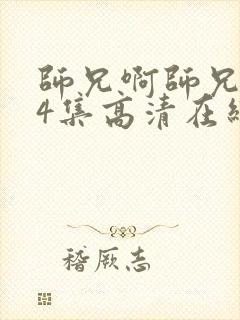 師兄啊師兄
4集高清在
稽厥志